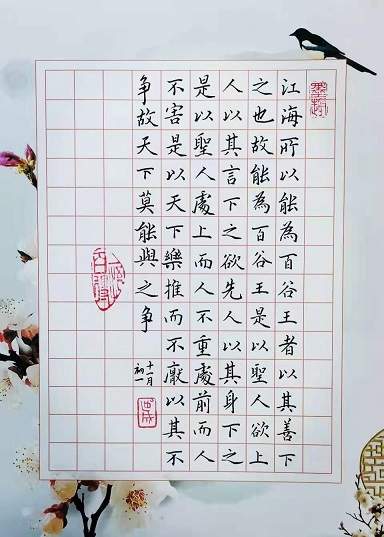 江海所以能為百谷王者以其善下
之也故能為百谷王是以聖人欲上
人以其言下之欲先人以其身下之
是以聖人處上而人不重處前而人
不害是以天下樂推而不厭以其不
争故天下莫能與之争
十一月
初一